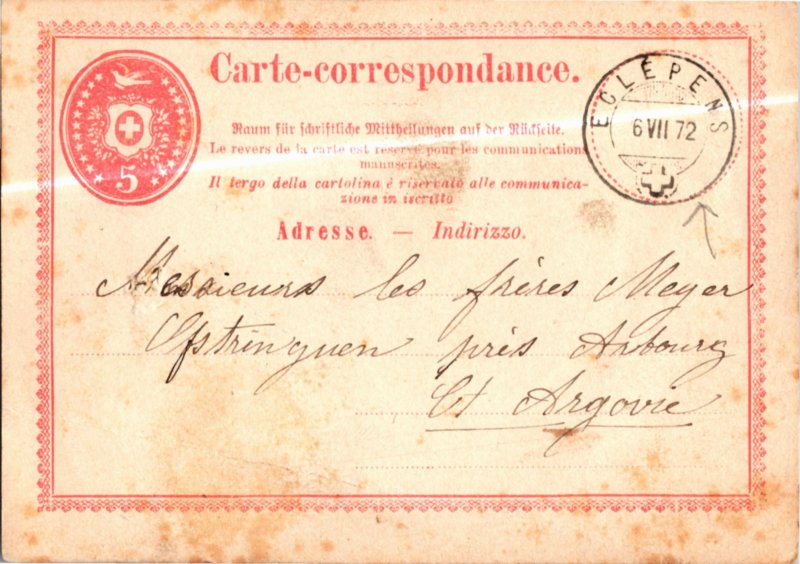 Carte-correspondance.
5
ECLÉPENS
6 VII 72
Raum für schriftliche Mittheilungen auf der Rückseite.
Le revers de la carte est reservé pour les communications
manuscrites.
Il tergo della cartolina è riservato alle communica-
zione in iscritto
Adresse. — Indirizzo.
Messieurs les frères Meyer
Oftringuen près Arbourg
Ct Argovie